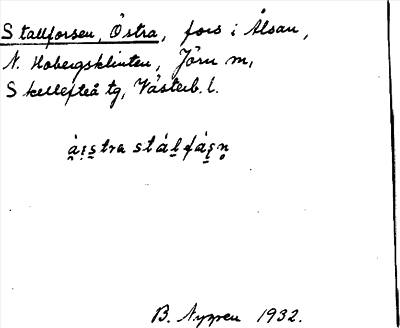 Stallforsen, Östra, fors i Ålsån,
N. Hobergsklinten, Jörn m,
Skellefteå tg, Västerb. l.
a̯i̯s̱tra stálfás̱n̥
B. Nygren 1932.